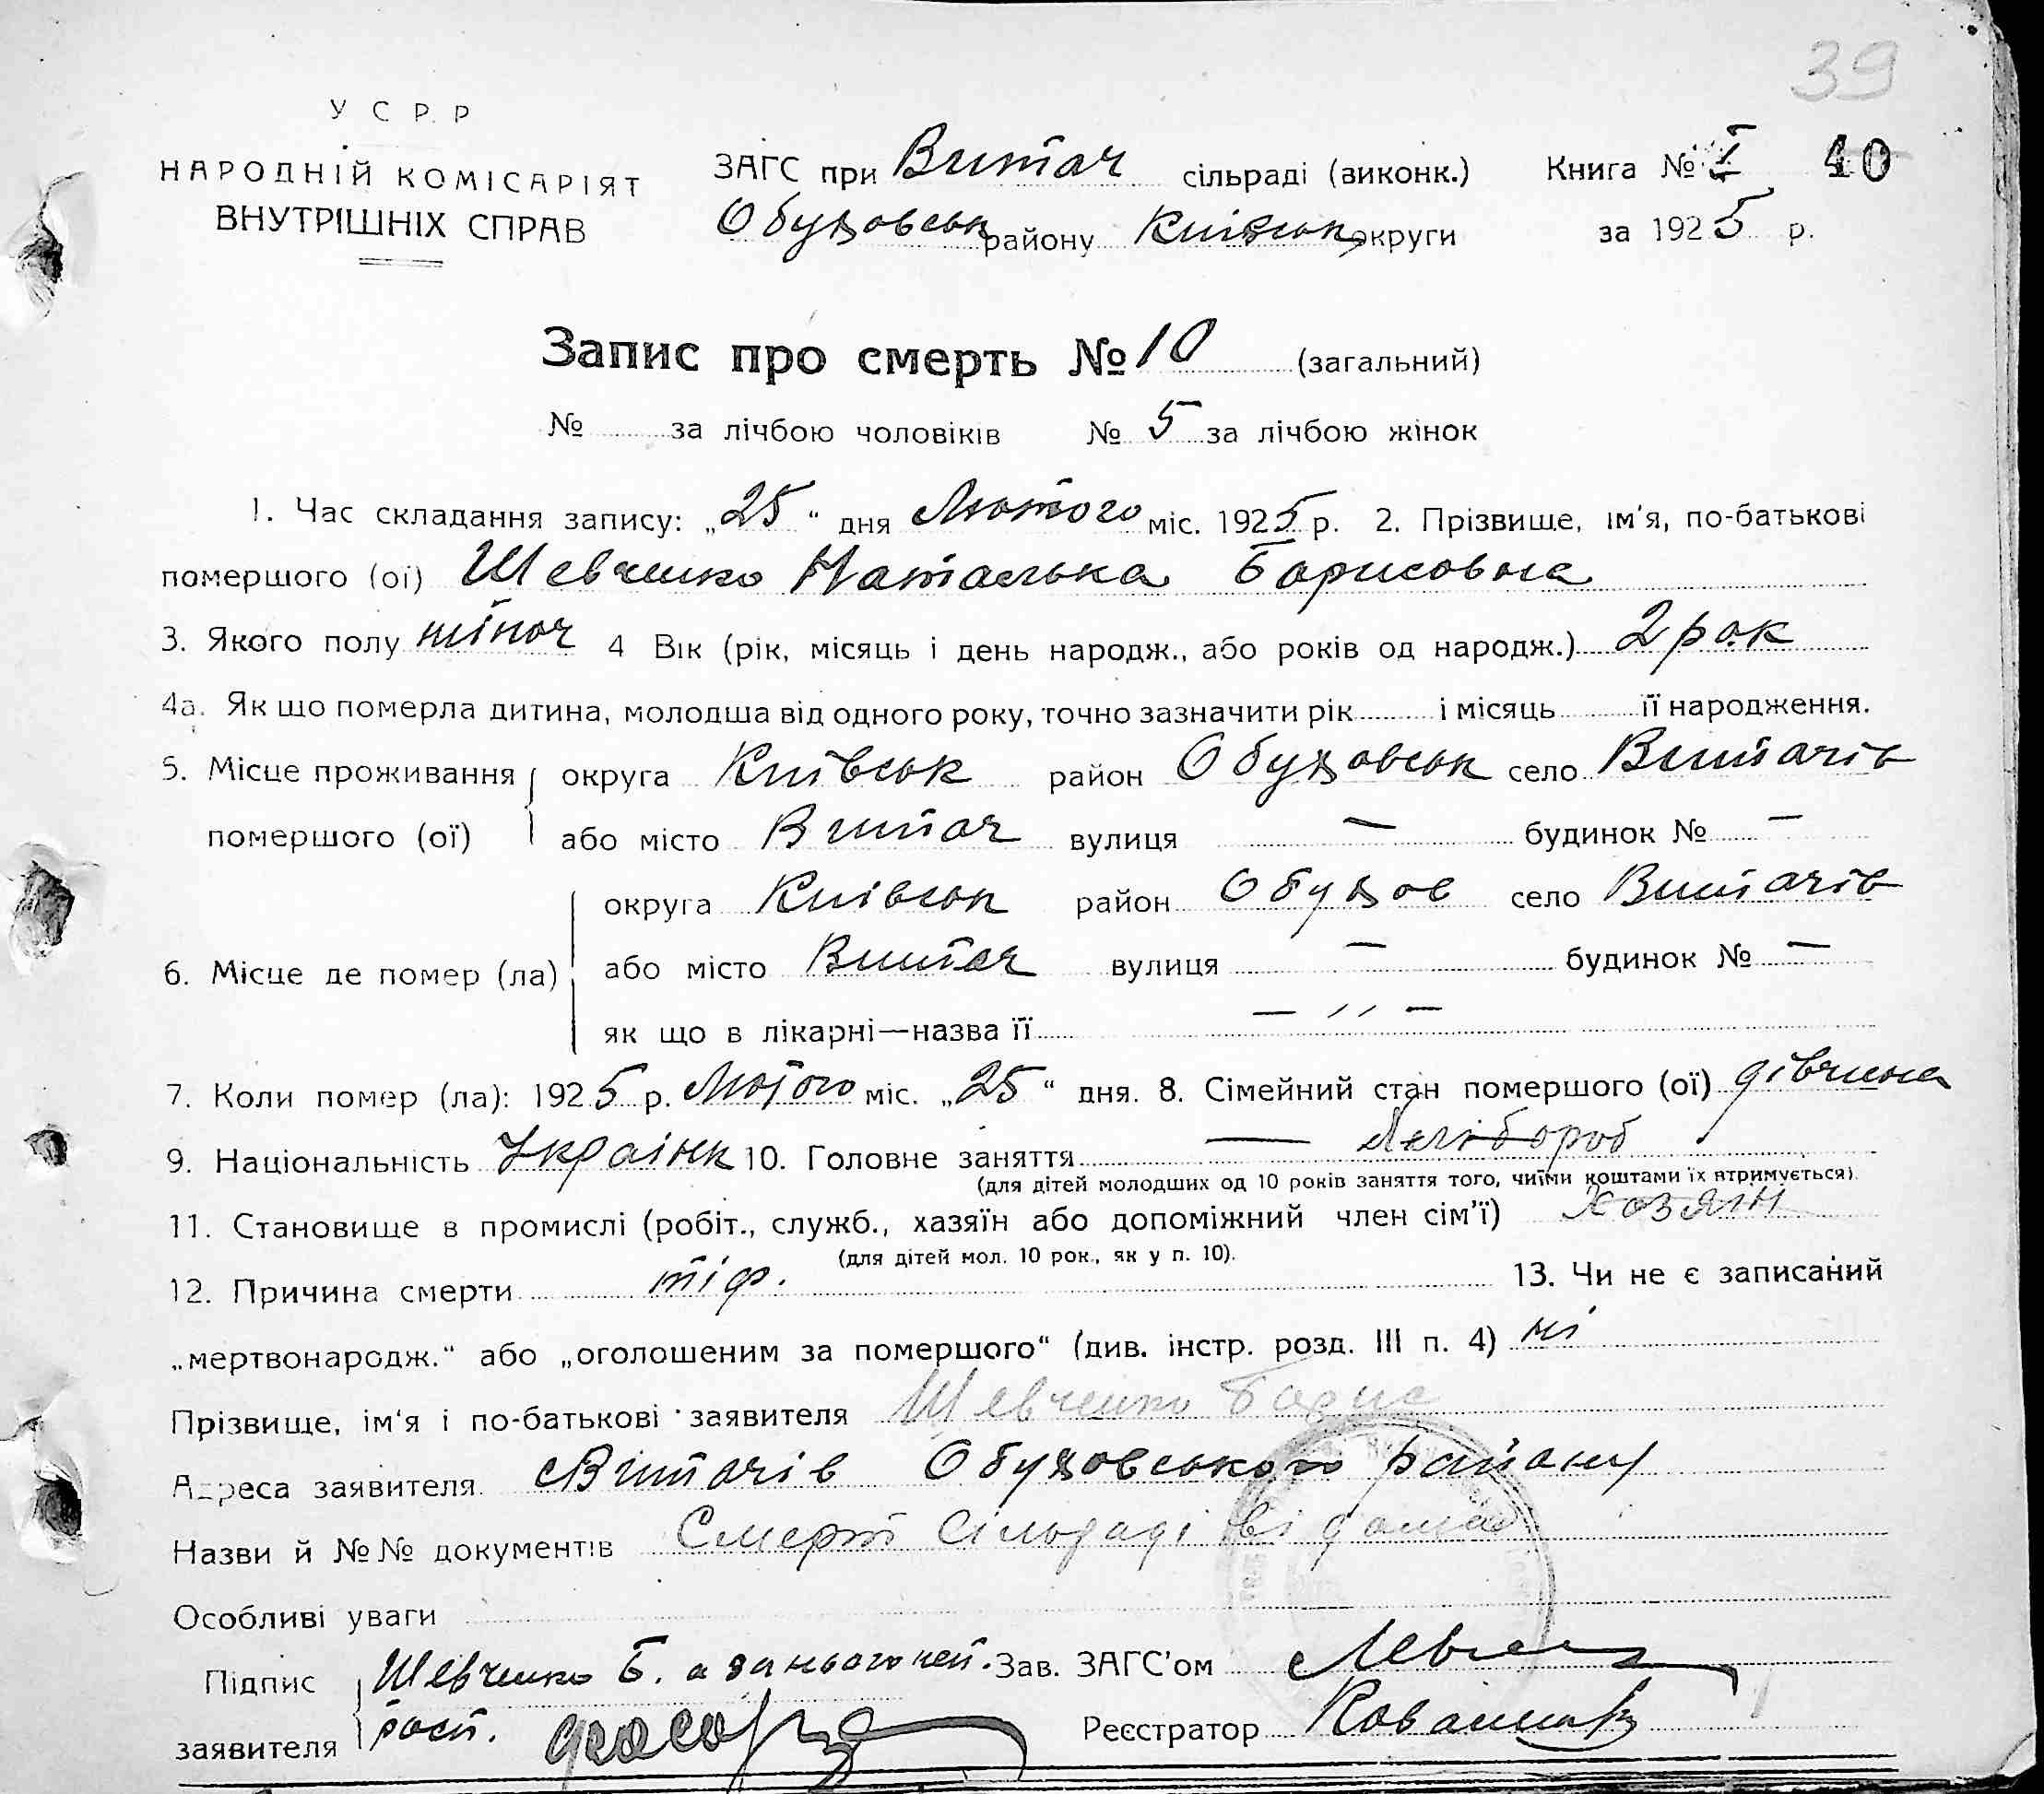 39
У С Р Р
НАРОДНІЙ КОМІСАРІЯТ
ВНУТРІШНІХ СПРАВ
ЗАГС при Витач сільраді (виконк.) Книга № I 40
Обуховськ району Київськ округи за 1925 р.
Запис про смерть № 10 (загальний)
№ за лічбою чоловіків № 5 за лічбою жінок
1. Час складання запису: „25“ дня Лютого міс. 1925 р. 2. Прізвище, ім'я, по-батькові
помершого (ої) Шевченко Наталька Борисовна
3. Якого полу жіноч 4 Вік (рік, місяць і день народж., або років од народж.) 2 рок
4а. Як що померла дитина, молодша від одного року, точно зазначити рік і місяць її народження.
5. Місце проживання округа Київськ район Обуховськ село Витачів
помершого (ої) або місто Витач вулиця — будинок № —
округа Київськ район Обухов село Витачів
6. Місце де помер (ла) або місто Витач вулиця — будинок № —
як що в лікарні—назва її — ,, —
7. Коли помер (ла): 1925 р. Лютого міс. „25“ дня. 8. Сімейний стан помершого (ої) дівчина
9. Національність Українк 10. Головне заняття — Хлібороб
(для дітей молодших од 10 років заняття того, чиїми коштами їх втримується).
11. Становище в промислі (робіт., служб., хазяїн або допоміжний член сім'ї) хозяїн
(для дітей мол. 10 рок., як у п. 10).
12. Причина смерти тіф. 13. Чи не є записаний
„мертвонародж.“ або „оголошеним за помершого“ (див. інстр. розд. III п. 4) ні
Прізвище, ім'я і по-батькові заявителя Шевченко Борис
Адреса заявителя Витачів Обуховського району
Назви й №№ документів Смерт сільраді відома
Особливі уваги
Підпис Шевченко Б. а за нього неп. Зав. ЗАГС'ом
заявителя расп. Реєстратор